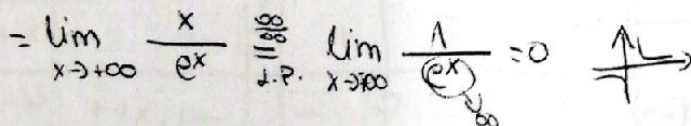 = lim x→+∞ x/e^x =^{∞/∞}_{L.P.} lim x→+∞ 1/e^x = 0
→∞